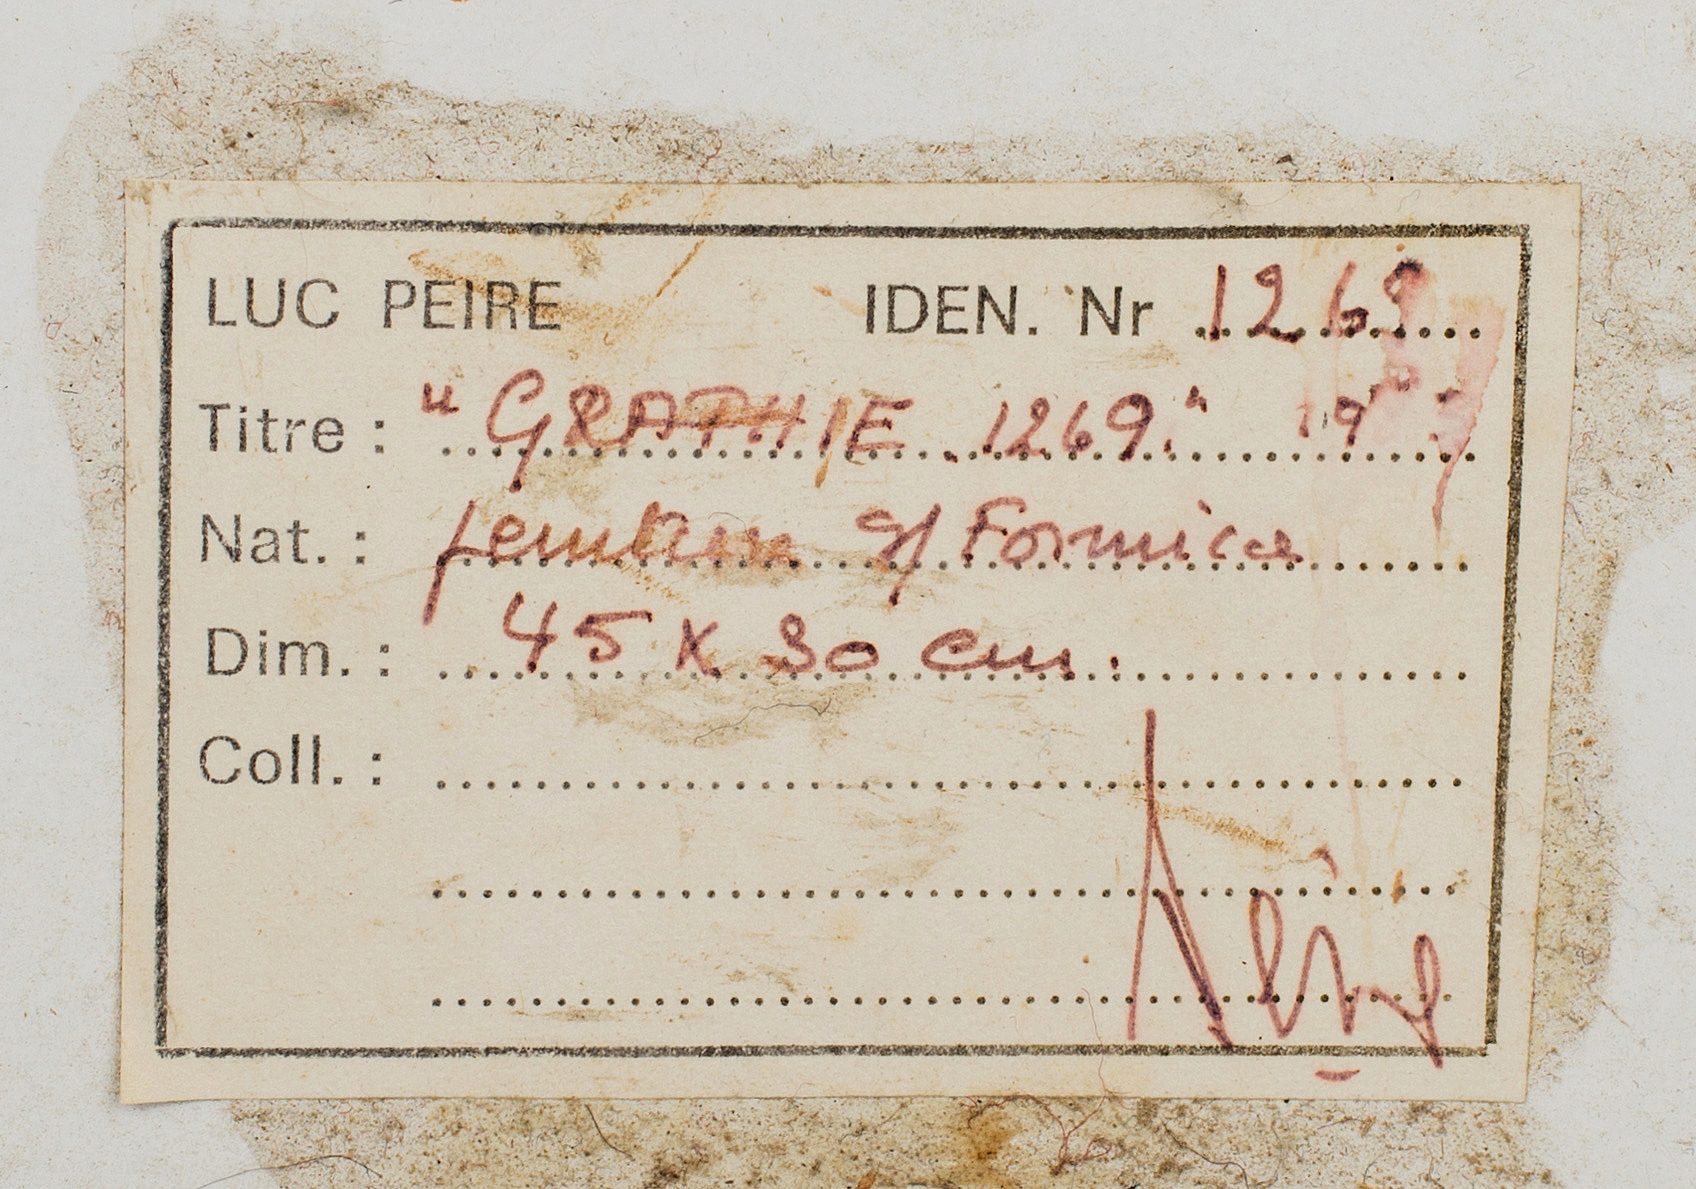 LUC PEIRE IDEN. Nr 1269
Titre : "GRAPHIE 1269."
Nat. : s/ Formica
Dim. : 45 x 30 cm.
Coll. :